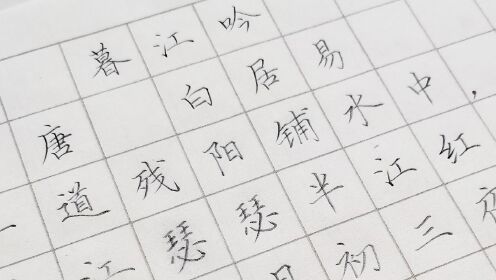 暮江吟
唐 白居易
一道残阳铺水中，
江瑟瑟半江红
月初三